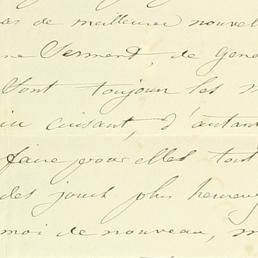 de meilleures nouvel
Serment, de Gene
sont toujours les m
cuisant, d'autant
faire pour elles tout
des jours plus heureux
moi de nouveau, m